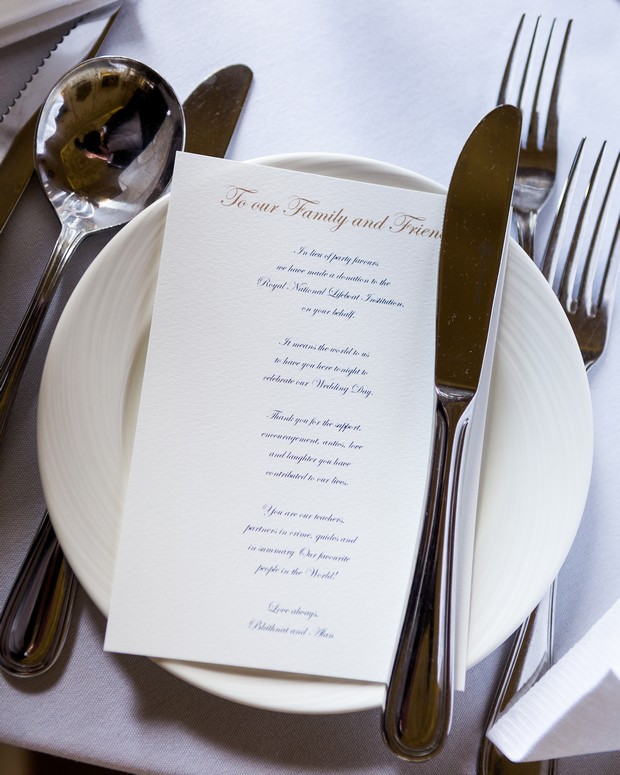 To our Family and Frien
In lieu of party favours
we have made a donation to the
Royal National Lifeboat Institution,
on your behalf.
It means the world to us
to have you here tonight to
celebrate our Wedding Day.
Thank you for the support,
encouragement, antics, love
and laughter you have
contributed to our lives.
You are our teachers,
partners in crime, guides and
in summary Our favourite
people in the World!
Love always,
Bláthnat and Alan